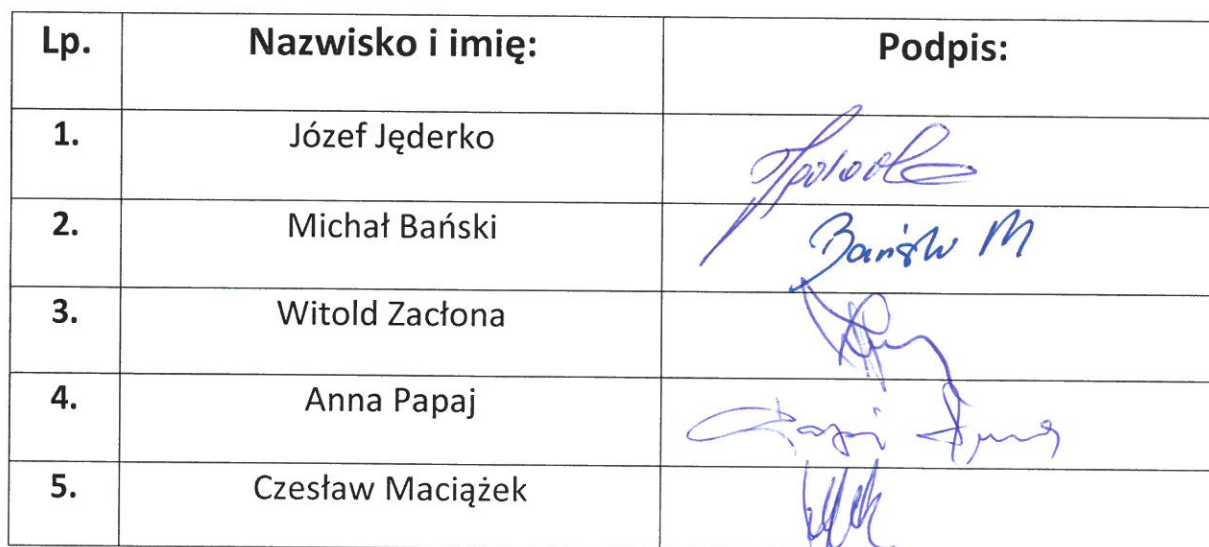 Lp. Nazwisko i imię: Podpis:
1. Józef Jęderko
2. Michał Bański Bański M
3. Witold Zacłona
4. Anna Papaj Papaj Anna
5. Czesław Maciążek